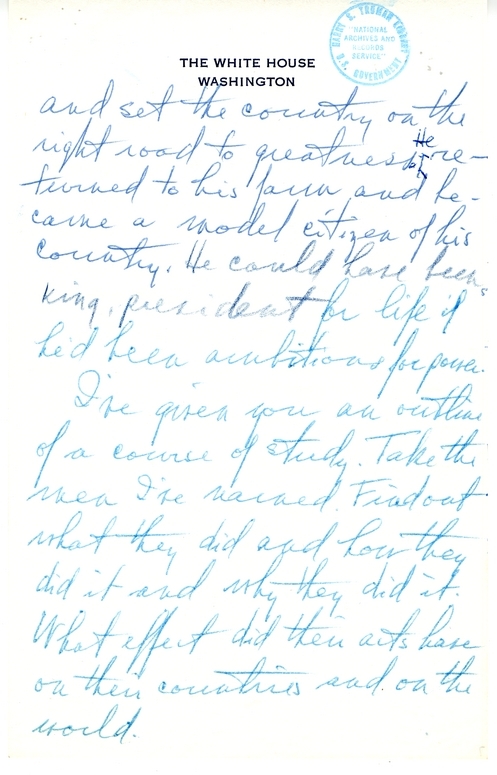 HARRY S. TRUMAN LIBRARY
"NATIONAL
ARCHIVES AND
RECORDS
SERVICE"
U.S. GOVERNMENT
THE WHITE HOUSE
WASHINGTON
and set the country on the
right road to greatness, He re-
turned to his farm and be-
came a model citizen of his
country. He could have been
king, president for life if
he'd been ambitious for power.
I've given you an outline
of a course of study. Take the
men I've named. Find out
what they did and how they
did it and why they did it.
What effect did their acts have
on their countries and on the
world.